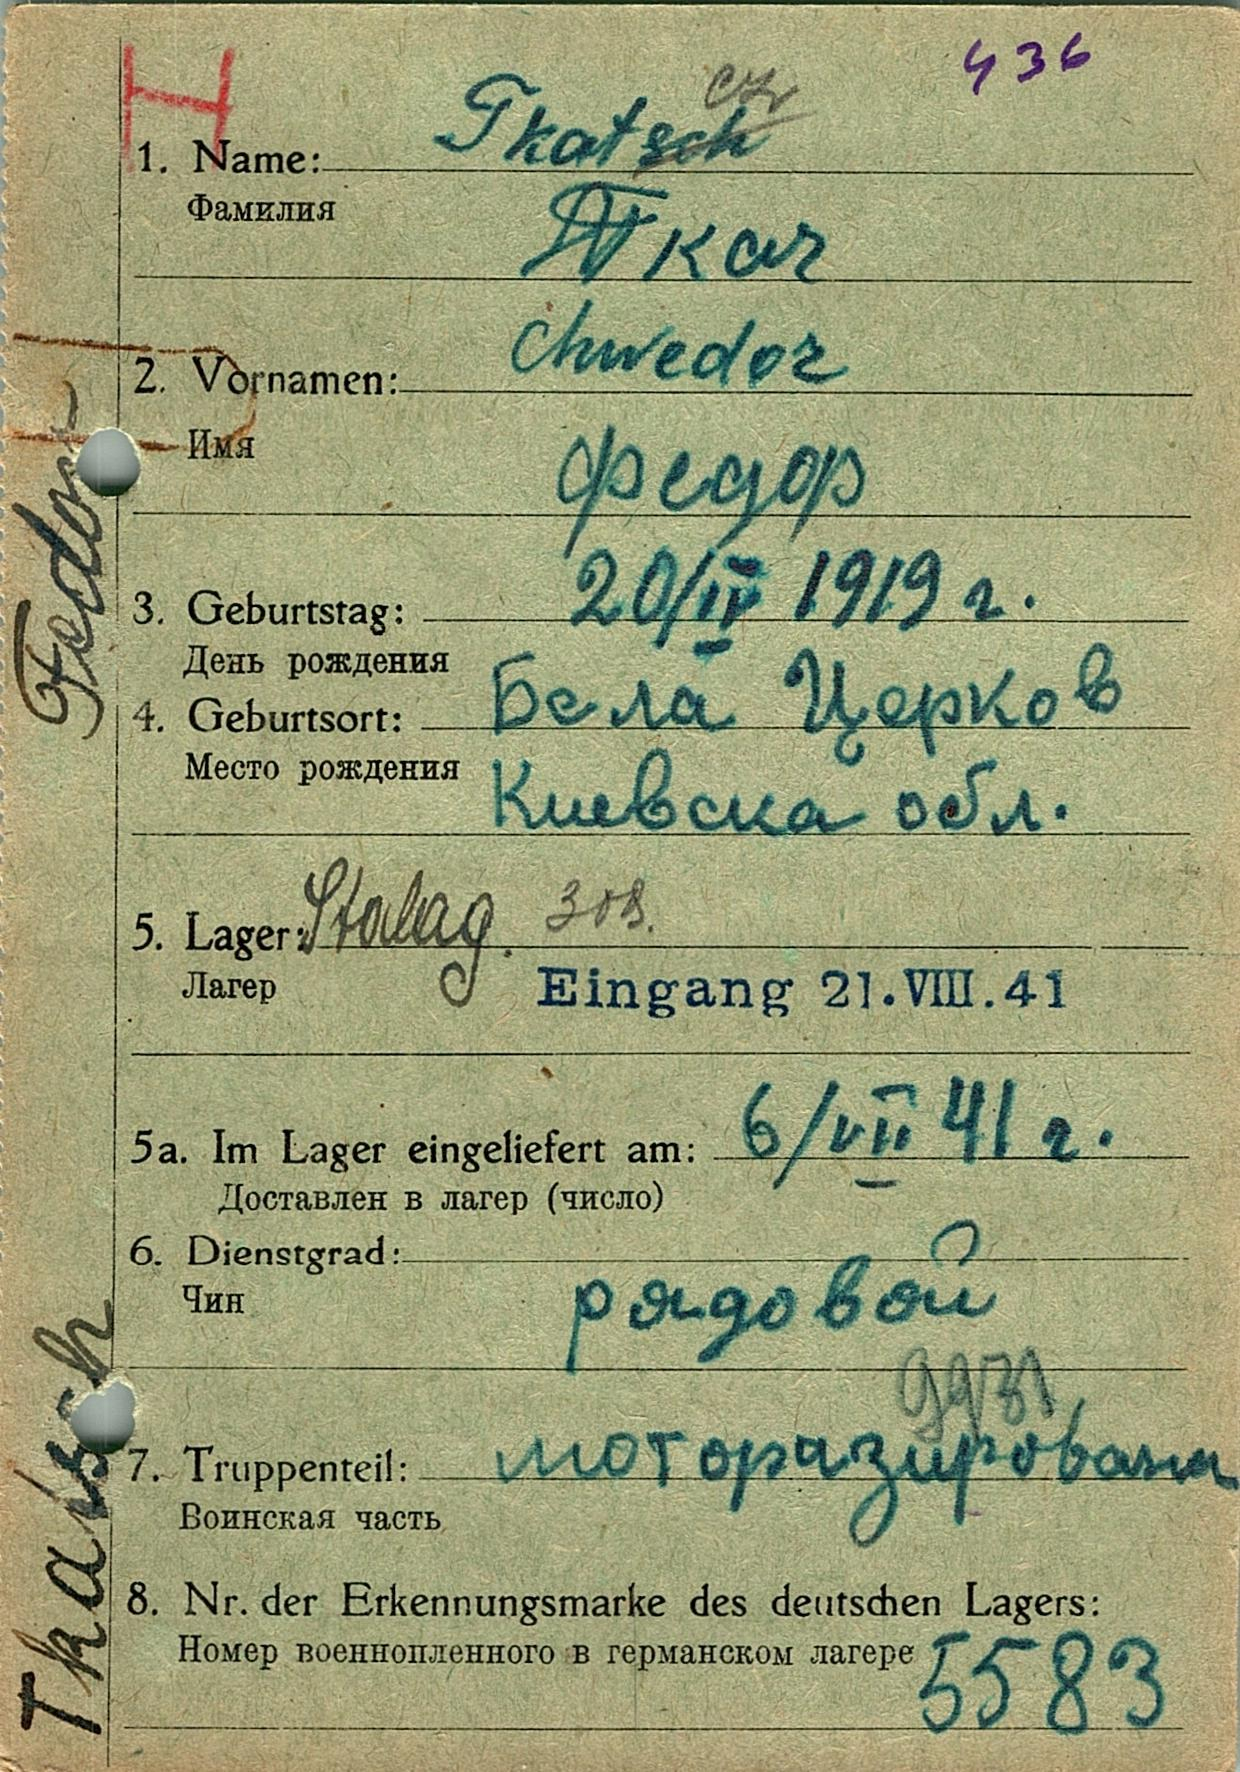 H
436
cz
1. Name: Tkatsch
Фамилия
Ткач
2. Vornamen: Chwedor
Имя
Федор
3. Geburtstag: 20/IV 1919 г.
День рождения
4. Geburtsort: Бела Церков
Место рождения
Киевска обл.
5. Lager: Stalag. 308.
Лагер
Eingang 21.VIII.41
5a. Im Lager eingeliefert am: 6/VII 41 г.
Доставлен в лагер (число)
6. Dienstgrad:
Чин
рядовой
7. Truppenteil:
Воинская часть
8. Nr. der Erkennungsmarke des deutschen Lagers:
Номер военнопленного в германском лагере 5583
Fedor
Tkatsch